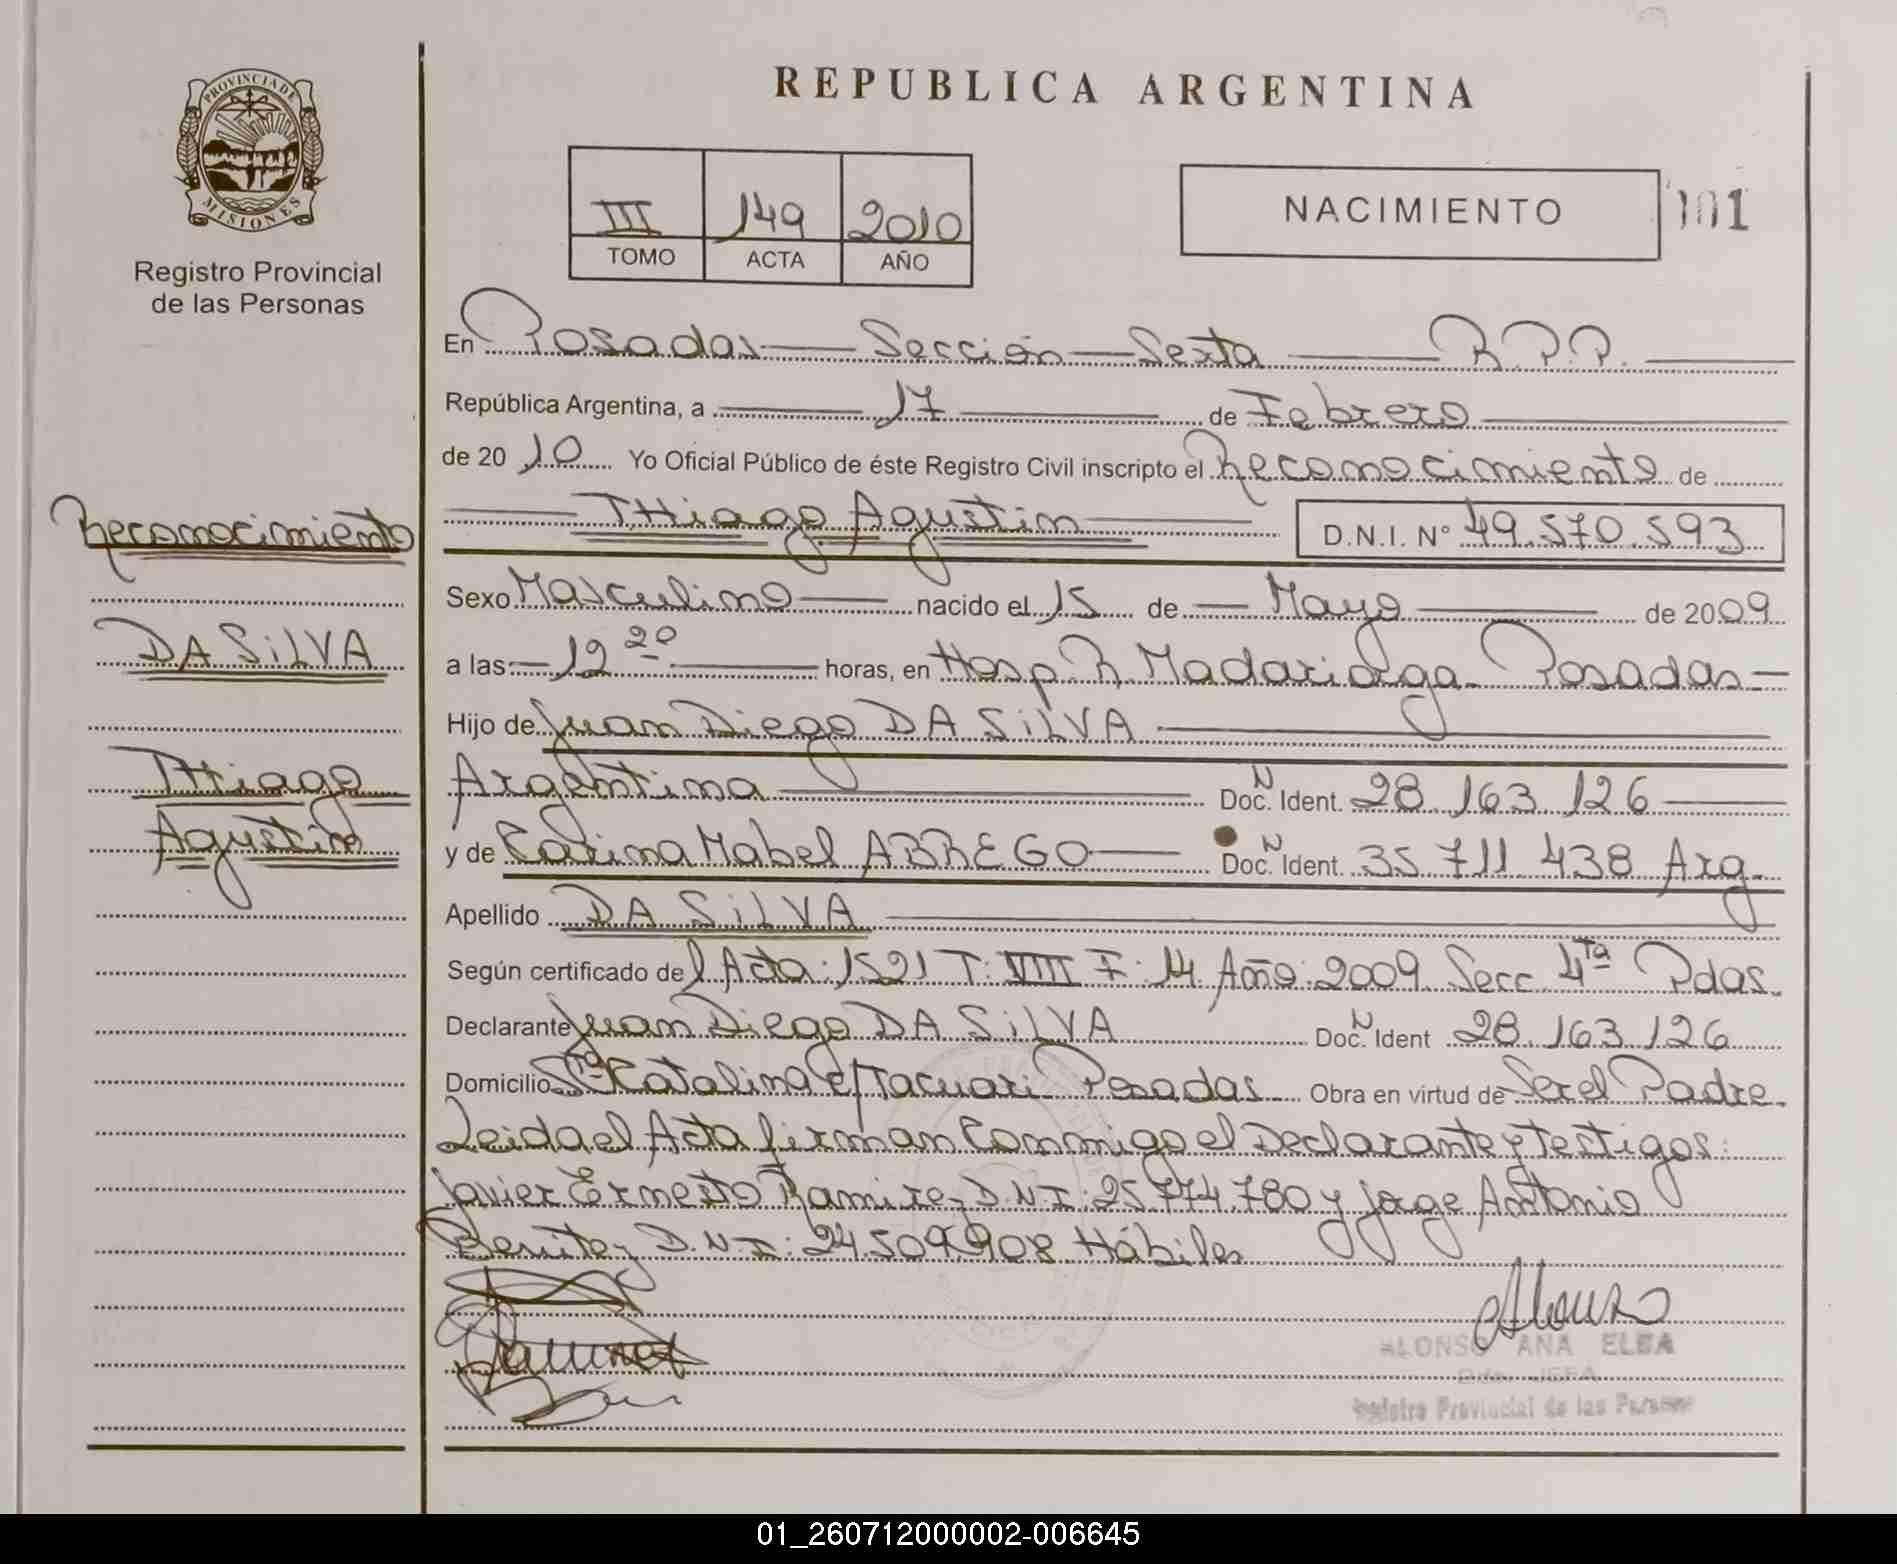 REPUBLICA ARGENTINA
PROVINCIA DE
MISIONES
Registro Provincial
de las Personas
III 149 2010
TOMO ACTA AÑO
NACIMIENTO 101
En Posadas Sección Sexta R.P.P.
República Argentina, a 17 de Febrero
de 20 10 Yo Oficial Público de éste Registro Civil inscripto el Reconocimiento de
THiago Agustin D.N.I. N° 49.570.593
Reconocimiento
DA SiLVA
THiago
Agustin
Sexo Masculino nacido el 15 de Mayo de 2009
a las 12 20 horas, en Hosp. R. Madariaga Posadas
Hijo de Juan Diego DA SiLVA
Argentina Doc. N Ident. 28.163.126
y de Carina Mabel ABREGO Doc. N Ident. 35.711.438 Arg.
Apellido DA SiLVA
Según certificado del Acta: 1521 T: VIII F: 14 Año: 2009. Secc 4ta Pdas.
Declarante Juan Diego DA SiLVA Doc. N Ident 28.163.126
Domicilio Sta Catalina c/Tacuari Posadas Obra en virtud de Ser el Padre.
Leida el Acta firman Conmigo el Declarante y Testigos:
Javier Ernesto Ramirez D.N.I: 25.774.780 y Jorge Antonio
Benitez D.N.I: 24.509.908 Hábiles
ALONSO ANA ELBA
JEFA
Registro Provincial de las Personas
01_260712000002-006645